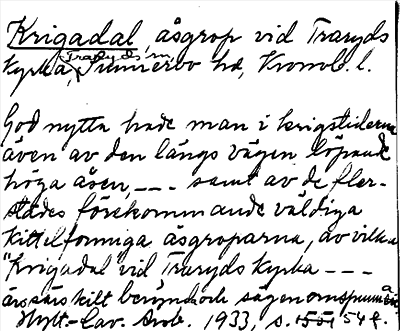 Krigadal, åsgrop vid Traryds
kyrka, Traryds sn, Sunnerbo hd, Kronob. l.
God nytta hade man i krigstiderna
även av den längs vägen löpande
höga åsen, --- samt av de fler-
städes förekommande väldiga
kittelformiga åsgroparna, av vilka
"Krigadal vid Traryds kyrka ---
är särskilt berymd och sägenomspunnen
Hylt.-Cav. Årsb. 1933, s. 54 f.